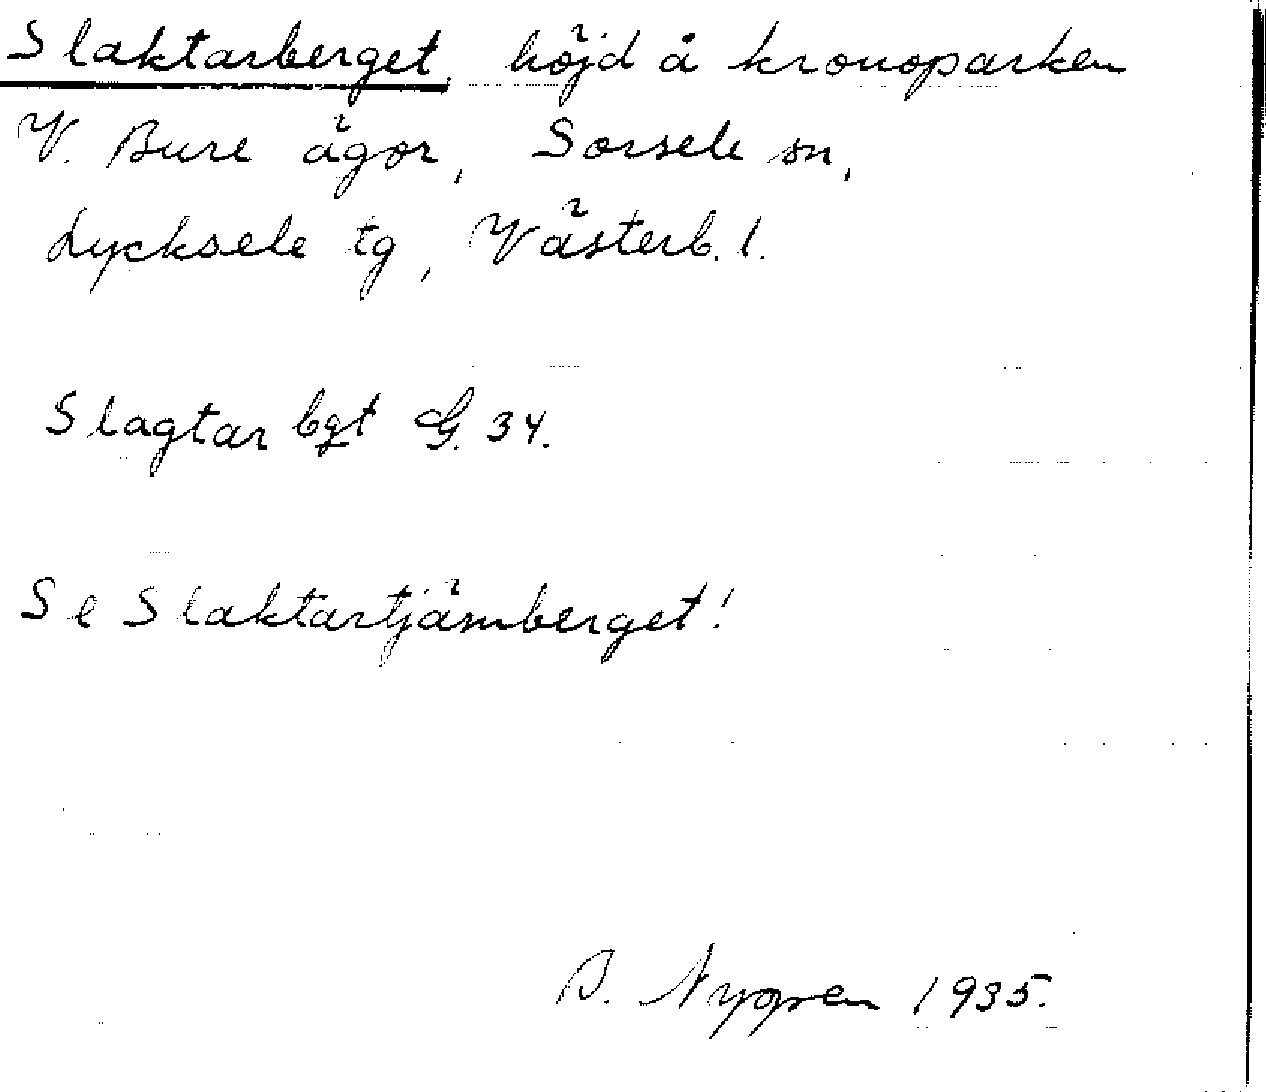 Slaktarberget, höjd å kronoparken
V. Bure ägor, Sorsele sn,
Lycksele tg, Västerb. l.
Slagtar bgt G. 34.
Se Slaktartjärnberget!
B. Nygren 1935.